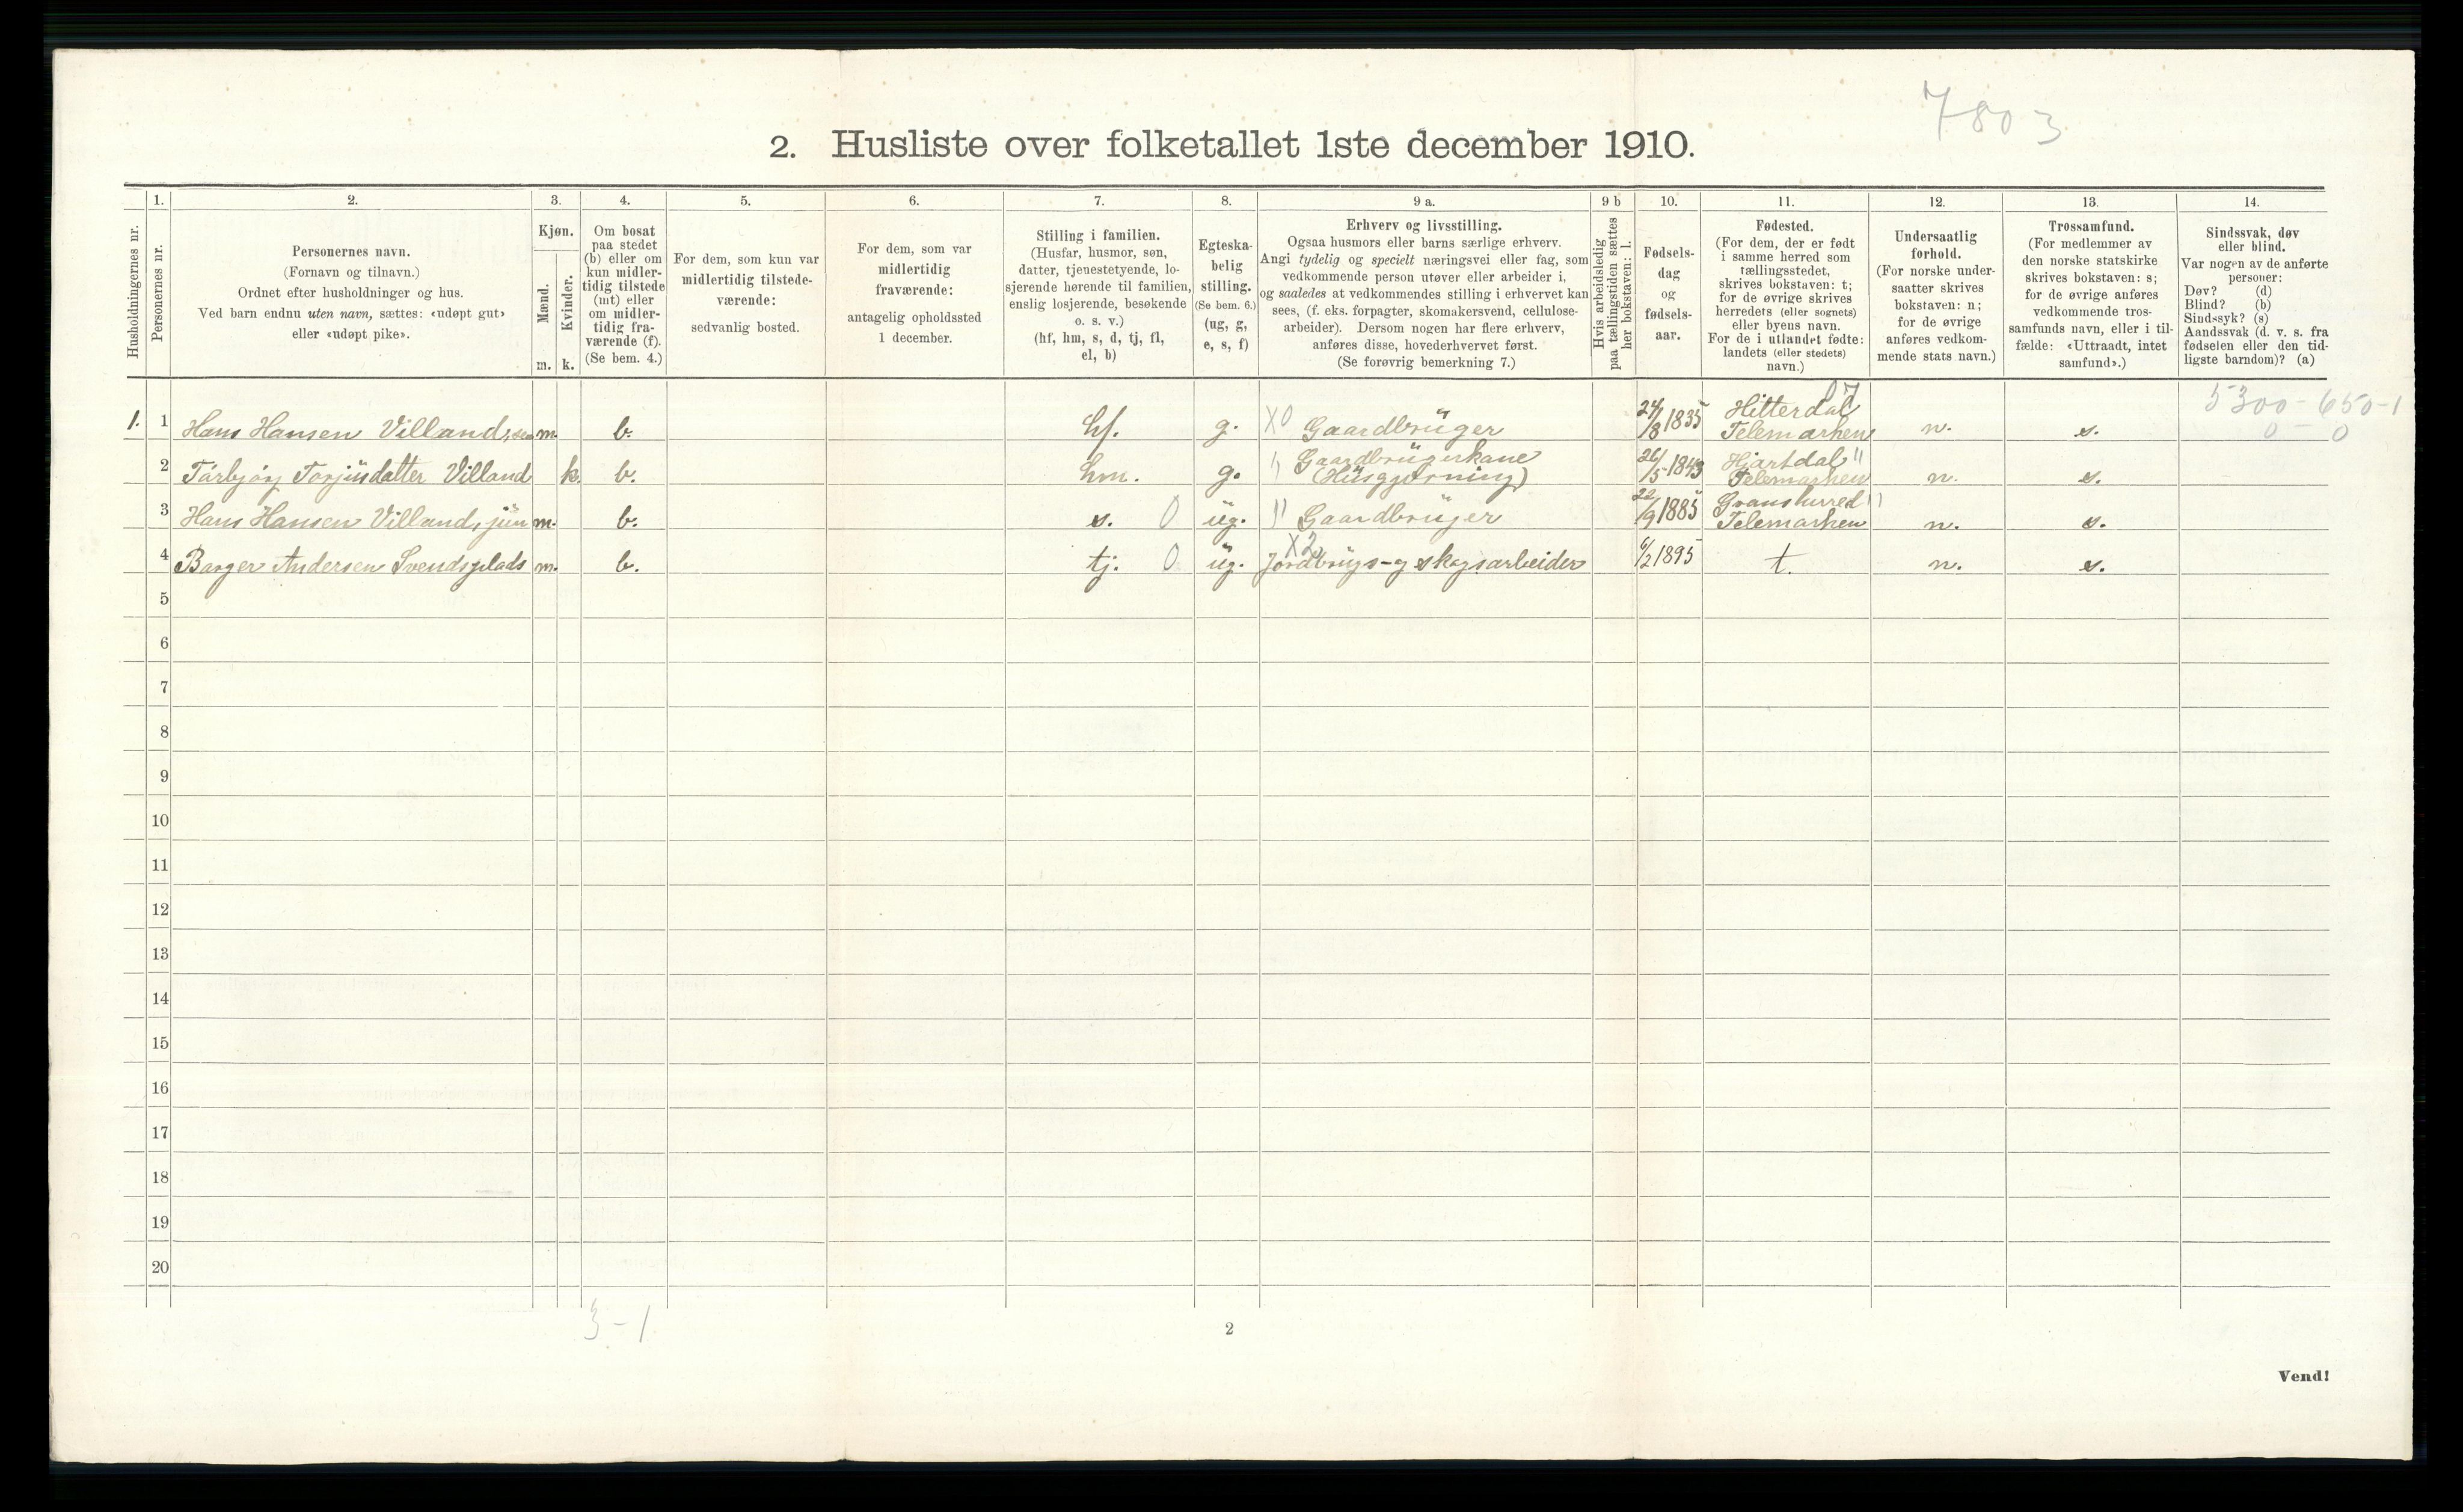 7803
2. Husliste over folketallet 1ste december 1910.
Husholdningernes nr.
1.
Personernes nr.
2.
Personernes navn.
(Fornavn og tilnavn.)
Ordnet efter husholdninger og hus.
Ved barn endnu uten navn, sættes: «udøpt gut»
eller «udøpt pike».
3.
Kjøn.
Mænd.
m.
Kvinder.
k.
4.
Om bosat
paa stedet
(b) eller om
kun midler-
tidig tilstede
(mt) eller
om midler-
tidig fra-
værende (f).
(Se bem. 4.)
5.
For dem, som kun var
midlertidig tilstede-
værende:
sedvanlig bosted.
6.
For dem, som var
midlertidig
fraværende:
antagelig opholdssted
1 december.
7.
Stilling i familien.
(Husfar, husmor, søn,
datter, tjenestetyende, lo-
sjerende hørende til familien,
enslig losjerende, besøkende
o. s. v.)
(hf, hm, s, d, tj, fl,
el, b)
8.
Egteska-
belig
stilling.
(Se bem. 6.)
(ug, g,
e, s, f)
9 a.
Erhverv og livsstilling.
Ogsaa husmors eller barns særlige erhverv.
Angi tydelig og specielt næringsvei eller fag, som
vedkommende person utøver eller arbeider i,
og saaledes at vedkommendes stilling i erhvervet kan
sees, (f. eks. forpagter, skomakersvend, cellulose-
arbeider). Dersom nogen har flere erhverv,
anføres disse, hovederhvervet først.
(Se forøvrig bemerkning 7.)
9 b
Hvis arbeidsledig
paa tællingstiden sættes
her bokstaven: l.
10.
Fødsels-
dag
og
fødsels-
aar.
11.
Fødested.
(For dem, der er født
i samme herred som
tællingsstedet,
skrives bokstaven: t;
for de øvrige skrives
herredets (eller sognets)
eller byens navn.
For de i utlandet fødte:
landets (eller stedets)
navn.)
12.
Undersaatlig
forhold.
(For norske under-
saatter skrives
bokstaven: n;
for de øvrige
anføres vedkom-
mende stats navn.)
13.
Trossamfund.
(For medlemmer av
den norske statskirke
skrives bokstaven: s;
for de øvrige anføres
vedkommende tros-
samfunds navn, eller i til-
fælde: «Uttraadt, intet
samfund».)
14.
Sindssvak, døv
eller blind.
Var nogen av de anførte
personer:
Døv? (d)
Blind? (b)
Sindssyk? (s)
Aandssvak (d. v. s. fra
fødselen eller den tid-
ligste barndom)? (a)
07
5300-650-1
0 - 0
1. 1 Hans Hansen Villand, sen m. b. hf. g. X0 Gaardbrüger 24/8 1835 Hitterdal Telemarken n. s.
2 Tarbjörg Torjüsdatter Villand k. b. hm. g. " Gaardbrügerkone (Hüsgjerning) 26/5 1843 Hjartdal " Telemarken n. s.
3 Hans Hansen Villand, jün m. b. s. 0 üg. " Gaardbrüger 22/9 1885 Gransherred " Telemarken n. s.
4 Barger Andersen Svendsplads m. b. tj. 0 üg. X2 Jordbrügs- og skogsarbeider 6/2 1895 t. n. s.
5
6
7
8
9
10
11
12
13
14
15
16
17
18
19
20
3-1
2
Vend!